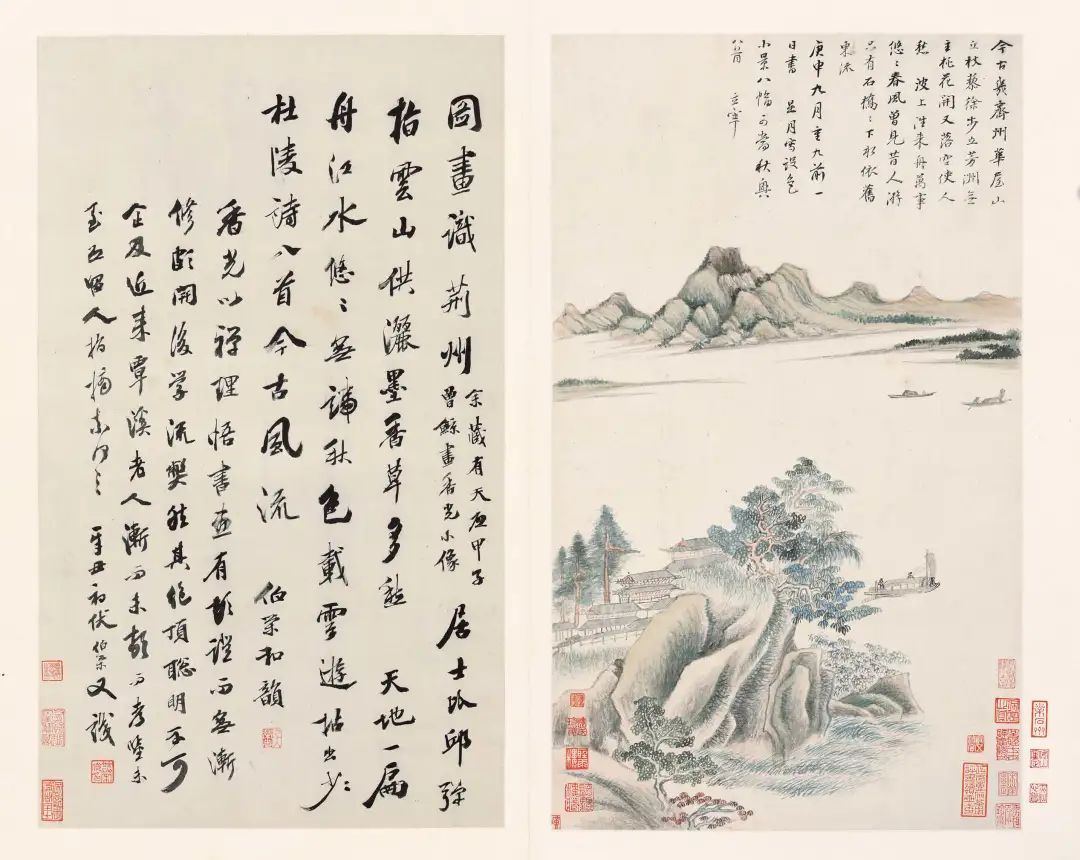 今古幾齊州華屋山
丘杖藜徐步立芳洲無
主桃花開又落空使人
愁 波上往來舟萬事
悠〻春風曾見昔人游
只有石橋〻下水依舊
東流
庚申九月重九前一
日書 是月寫設色
小景八幅可當秋興
八首 玄宰
圖畫識荊州 余藏有天啟甲子
曾鯨畫香光小像 居士
指雲山供灑墨香草多愁 天地一扁
舟江水悠〻無譜秋色載雲遊拈出少〻
杜陵詩八首今古風流 伯榮和韻
香光以禪理悟書畫有頓證而無漸
修頗開後學流弊然其絕頂聰明不可
企及近來覃溪老人漸而未頓而考證亦
人指摘 辛丑初伏伯榮又識